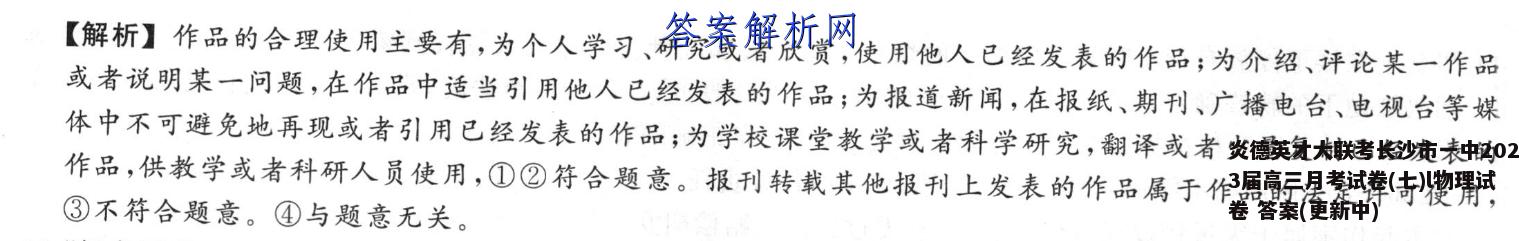 答案解析网
【解析】作品的合理使用主要有,为个人学习、研究或者欣赏,使用他人已经发表的作品;为介绍、评论某一作品
或者说明某一问题,在作品中适当引用他人已经发表的作品;为报道新闻,在报纸、期刊、广播电台、电视台等媒
体中不可避免地再现或者引用已经发表的作品;为学校课堂教学或者科学研究,翻译或者
发表的
作品,供教学或者科研人员使用,①②符合题意。报刊转载其他报刊上发表的作品属于作品的法定许可使用,
③不符合题意。④与题意无关。
炎德英才大联考长沙市一中202
3届高三月考试卷(七)l物理试
卷 答案(更新中)